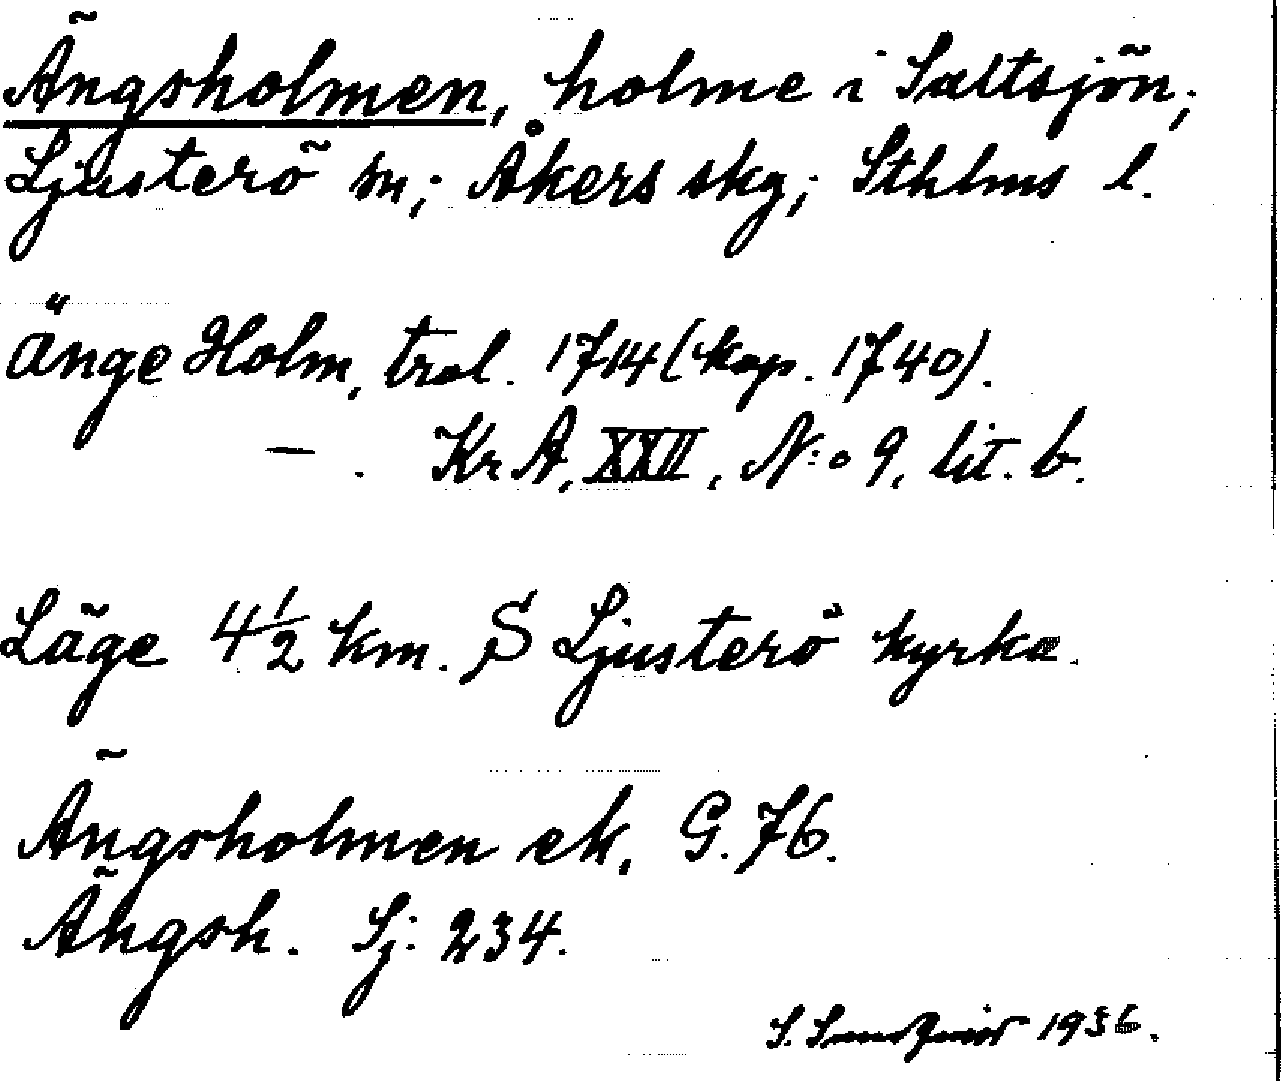 Ängsholmen, holme i Saltsjön;
Ljusterö sn; Åkers skg; Sthlms l.
Änge Holm, trol. 1714 (kop. 1740).
— . Kr A, XXII, N:o 9, lit. b.
Läge 4 1/2 km. S Ljusterö kyrka.
Ängsholmen ek, G. 76.
Ängsh. Sj: 234.
S. 1936.